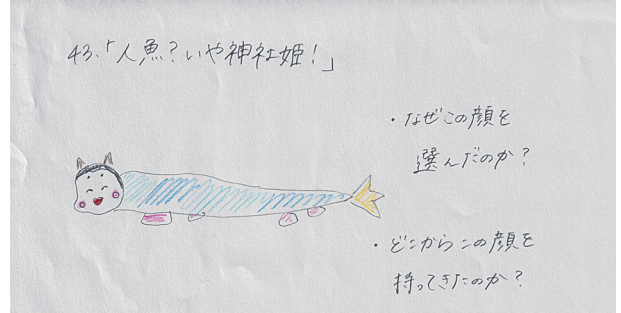 43.「人魚?いや神社姫!」
・なぜこの顔を
選んだのか?
・どこからこの顔を
持ってきたのか?